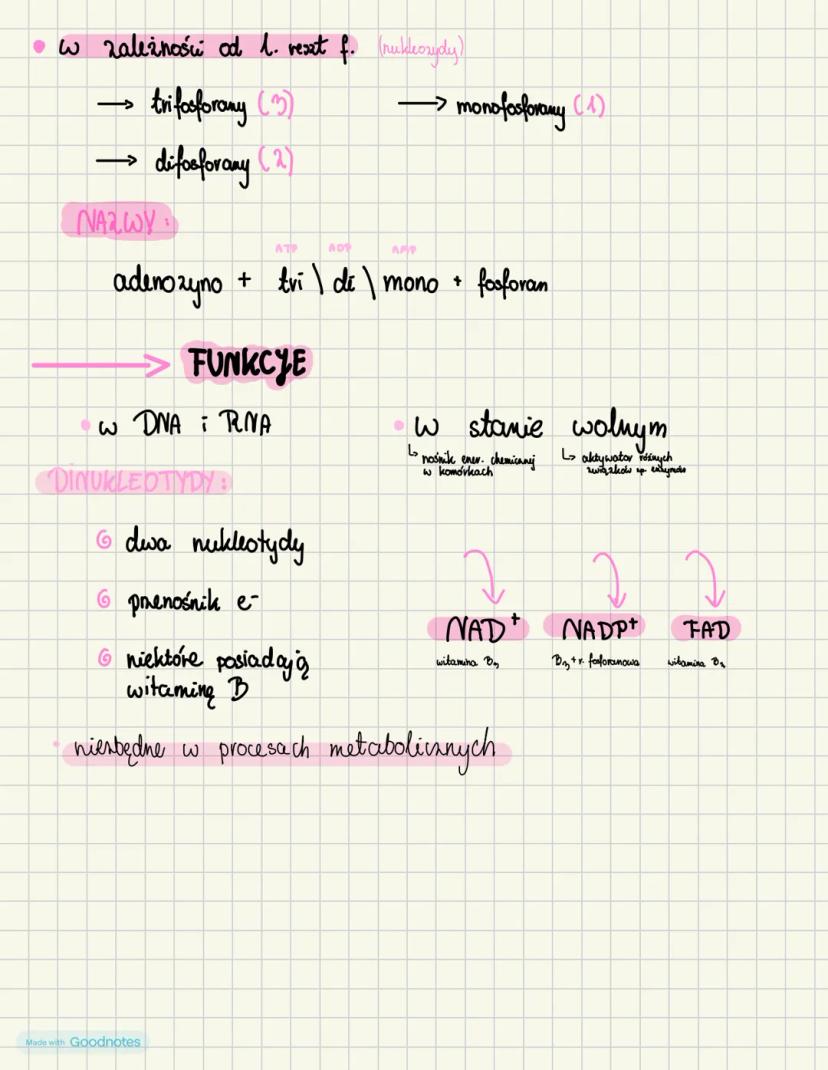 w zależności od l. reszt f. (nukleozydy)
→ trifosforany (3)
→ monofosforany (1)
→ difosforany (2)
NAZWY:
ATP ADP AMP
adenozyno + tri \ di \ mono + fosforan
FUNKCJE
w DNA i RNA
w stanie wolnym
nośnik ener. chemicznej
w komórkach
aktywator różnych
związków np. enzymów
DINUKLEOTYDY:
dwa nukleotydy
przenośnik e-
niektóre posiadają
witaminę B
NAD+ NADP+ FAD
witamina B₃
B₃ + r. fosforanowa
witamina B₂
niezbędne w procesach metabolicznych
Made with Goodnotes